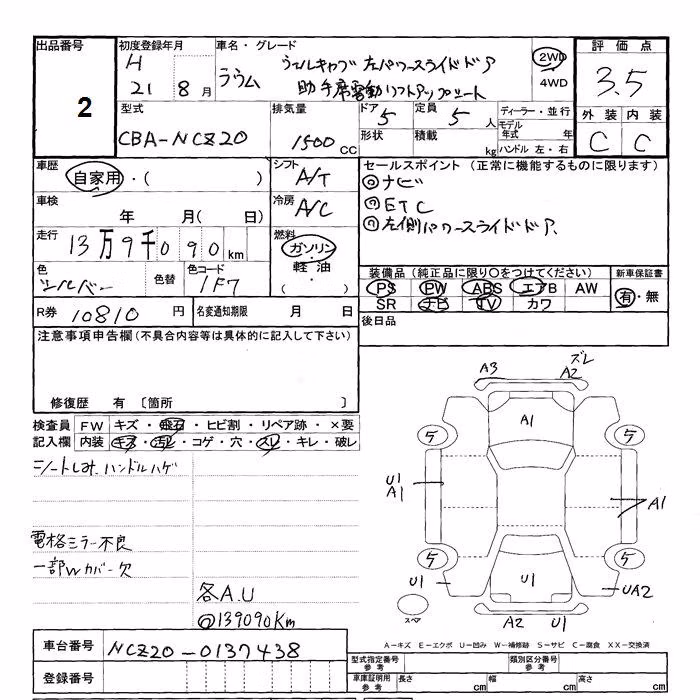 出品番号
2
初度登録年月
H
21 8月
車名・グレード
ラウム
ウェルキャブ 左パワースライドドア
助手席電動リフトアップシート
2WD
4WD
評価点
3.5
外装 内装
C C
型式
CBA-NCZ20
排気量
1500 CC
ドア
5
形状
定員
5人
積載
kg
ディーラー・並行
モデル
年式 年
ハンドル 左・右
車歴
自家用・( )
シフト
A/T
セールスポイント (正常に機能するものに限ります)
◎ナビ
◎ETC
◎左側パワースライドドア、
車検
年 月( 日)
冷房
A/C
走行
13万9千090km
燃料
ガソリン
軽油
・( )
色
シルバー
色替
色コード
1F7
装備品(純正品に限り〇をつけてください)
PS PW ABS エアB AW
SR ナビ TV カワ
新車保証書
有・無
R券 10810円
名変通知期限 月 日
後日品
注意事項申告欄(不具合内容等は具体的に記入して下さい)
修復歴 有 〔箇所 〕
検査員
記入欄
FW キズ・飛石・ヒビ割・リペア跡・×要
内装 キズ・汚レ・コゲ・穴・スレ・キレ・破レ
シートしみ ハンドルハゲ
電格ミラー不良
一部Wカバー欠
各A.U
@139090Km
A3 A2 ズレ
A1
5 5
U1
A1
A1
5 5
U1 U1 UA2
スペア
A2 U1
A-キズ E-エクボ U-凹み W-補修跡 S-サビ C-腐食 XX-交換済
車台番号 NCZ20-0137438
登録番号
型式指定番号
参考
類別区分番号
参考
車庫証明用
参考
長さ cm
幅 cm
高さ cm